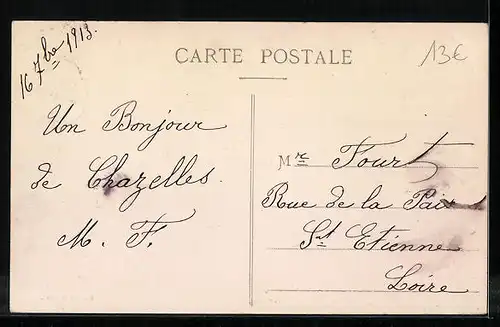 16 7bre 1913.
CARTE POSTALE
13€
Un Bonjour
de Chazelles.
M. F.
Mr Fourt
Rue de la Paix
St Etienne
Loire